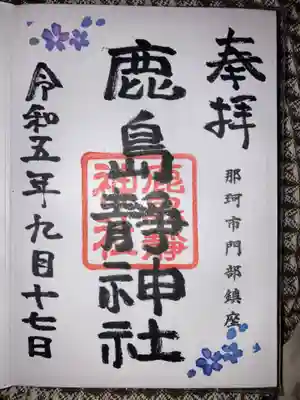 奉拝
那珂市門部鎮座
鹿島靜神社
鹿島靜
神社
令和五年九月十七日